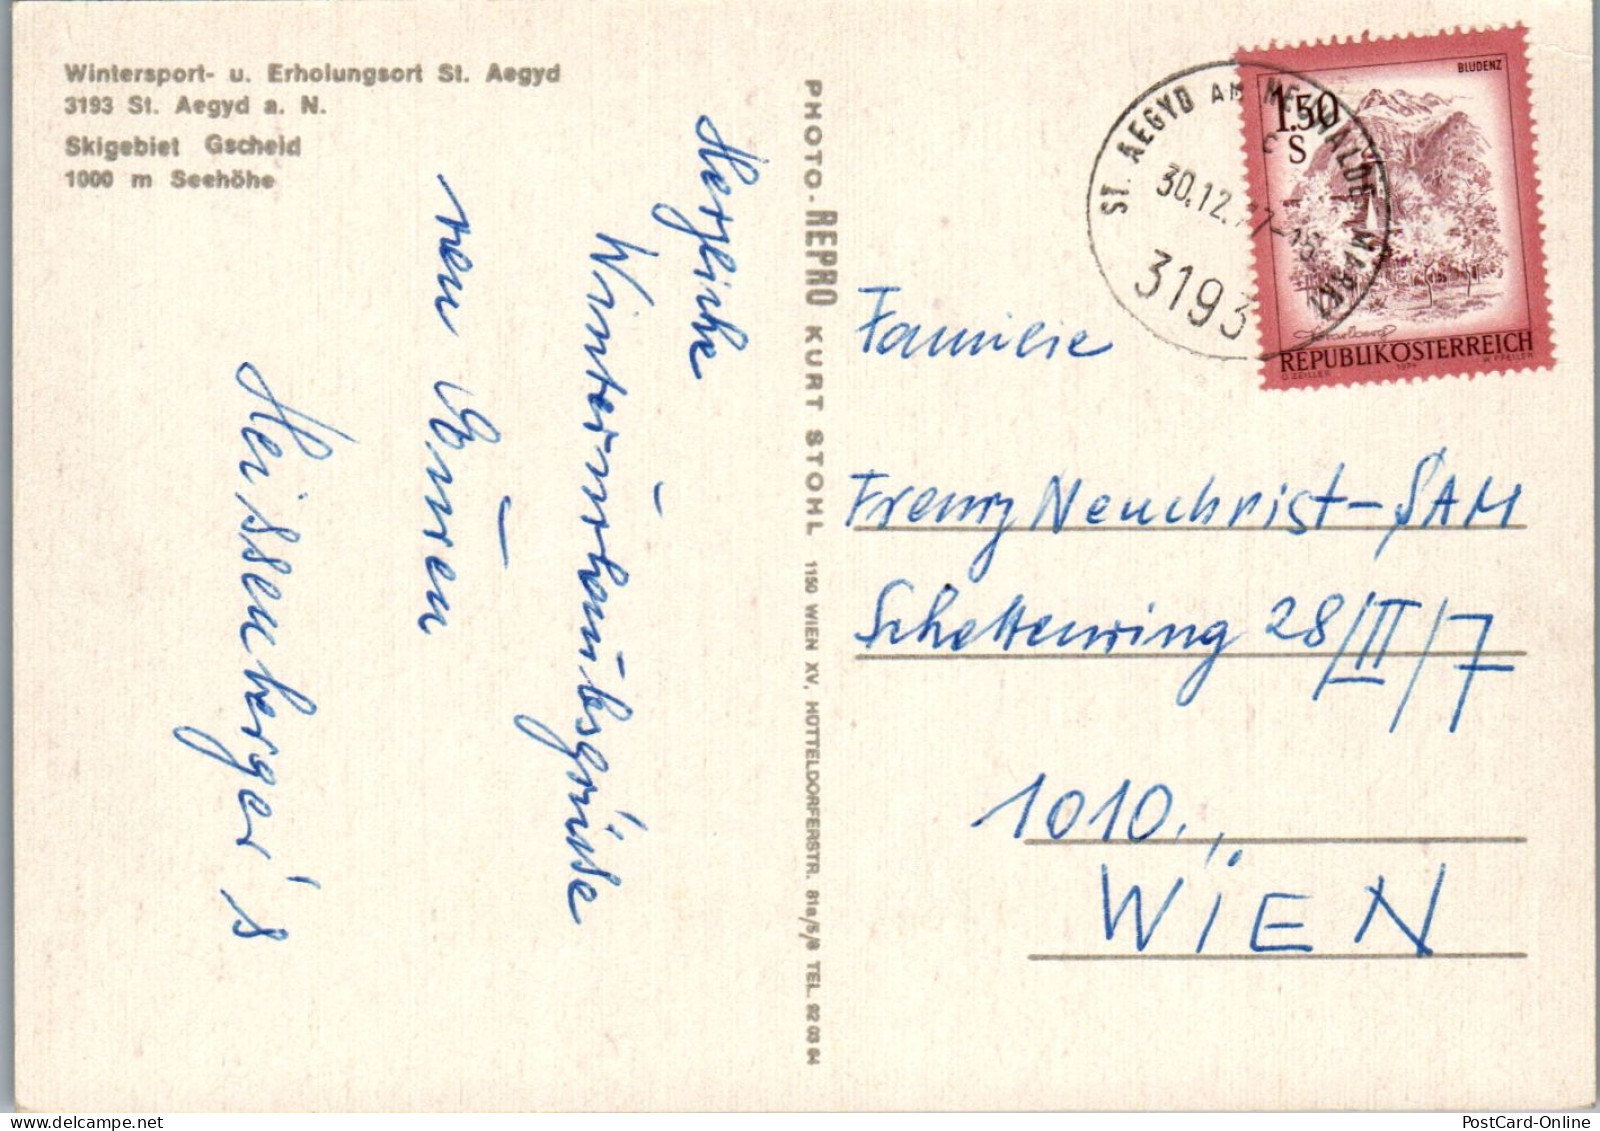 Wintersport- u. Erholungsort St. Aegyd
3193 St. Aegyd a. N.
Skigebiet Gscheid
1000 m Seehöhe
Herzliche
Winterurlaubsgrüsse
von Euren
Heissenberger's
PHOTO-REPRO KURT STOHL 1150 WIEN XV, HÜTTELDORFERSTR. 81a/5/8 TEL. 92 03 64
ST. AEGYD AM NEUWALDE
30.12.77-15
3193
BLUDENZ
1.50
S
Vorarlberg
REPUBLIK ÖSTERREICH
O. ZEILLER 1974 W. PFEILER
Familie
Neuchrist-SAM
Schottenring 28/III/7
1010.,
WiEN